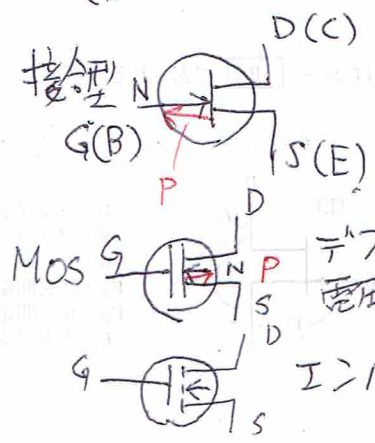 D(C)
接合型 N
G(B)
S(E)
P
D
MOS G N P デプ
電圧
S
D
G エン
S